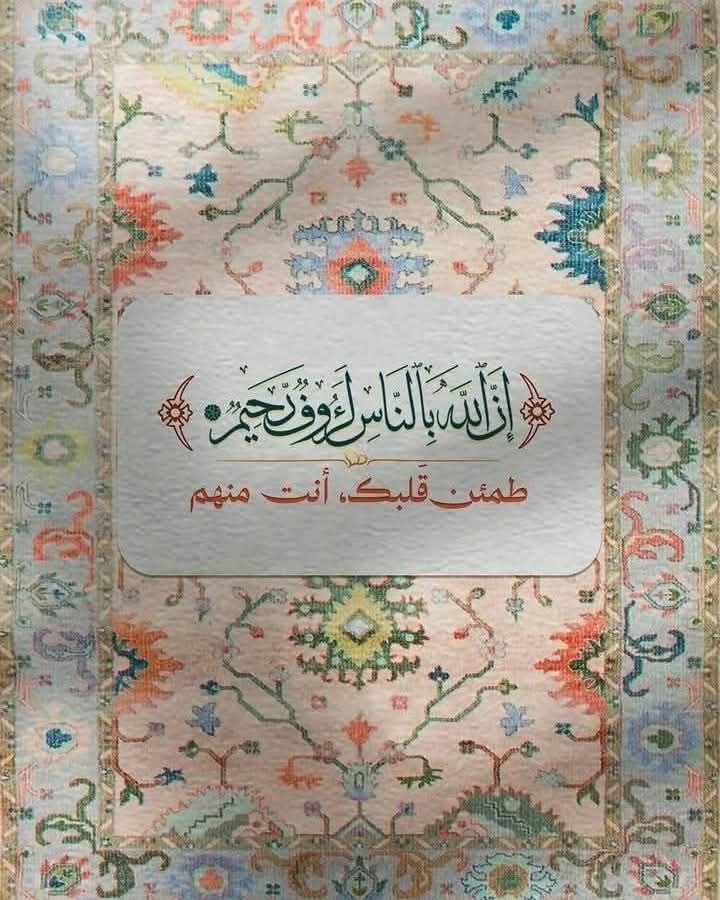 إِنَّ ٱللَّهَ بِٱلنَّاسِ لَرَءُوفٌ رَّحِيمٌ
طمئن قَلبك، أنت منهم